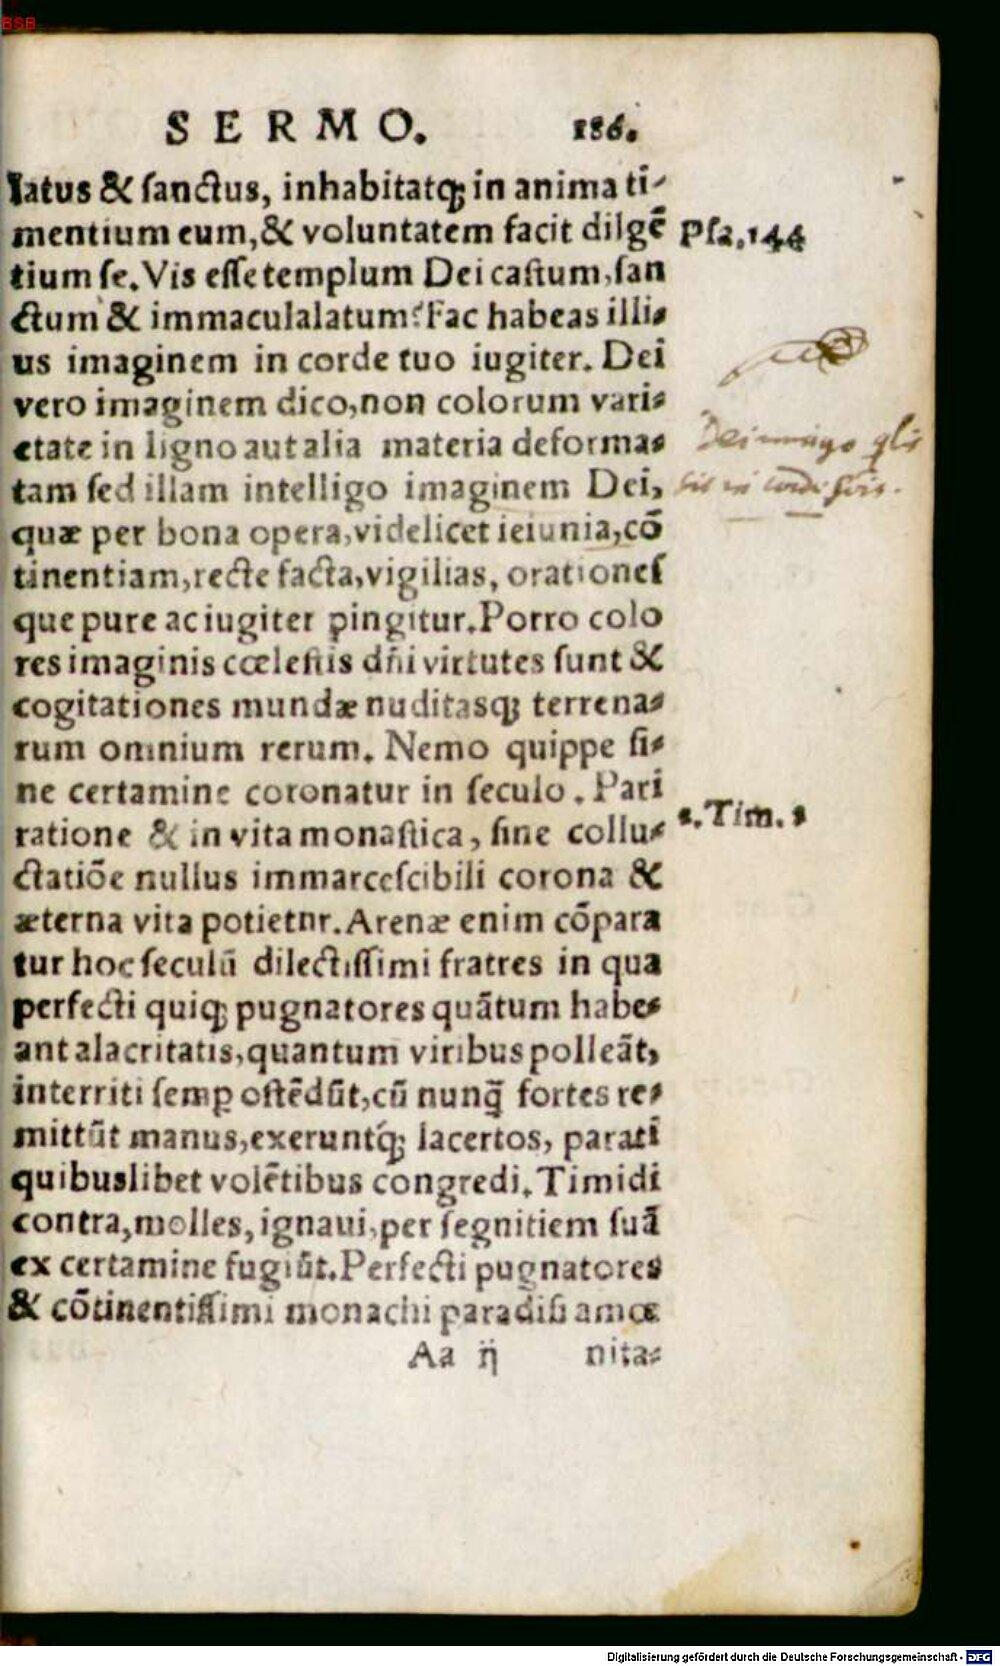 BSB
SERMO. 186.
latus & sanctus, inhabitatq́; in anima ti-
mentium eum,& voluntatem facit dilgẽ Psa.144
tium se. Vis esse templum Dei castum, san
ctum & immaculalatum? Fac habeas illi-
us imaginem in corde tuo iugiter. Dei
vero imaginem dico,non colorum vari-
etate in ligno aut alia materia deforma-
tam sed illam intelligo imaginem Dei,
quæ per bona opera,videlicet ieiunia,cõ
tinentiam,recte facta,vigilias, orationes
que pure ac iugiter pingitur.Porro colo
res imaginis cœlestis dñi virtutes sunt &
cogitationes mundæ nuditasq; terrena-
rum omnium rerum. Nemo quippe si-
ne certamine coronatur in seculo . Pari
ratione & in vita monastica, sine collu-
ctatiõe nullus immarcescibili corona &
æterna vita potietnr. Arenæ enim cõpara
tur hoc seculũ dilectissimi fratres in qua
perfecti quiq; pugnatores quãtum habe-
ant alacritatis,quantum viribus polleãt,
interriti semꝑ ostẽdũt,cũ nunq̃ fortes re-
mittũt manus,exeruntq́; lacertos, parati
quibuslibet volẽtibus congredi. Timidi
contra,molles, ignaui,per segnitiem suã
ex certamine fugiũt.Perfecti pugnatores
& cõtinentissimi monachi paradisi amœ
Aa ij nita-
2.Tim.2
Dei imago
sit in corde
Digitalisierung gefördert durch die Deutsche Forschungsgemeinschaft - DFG